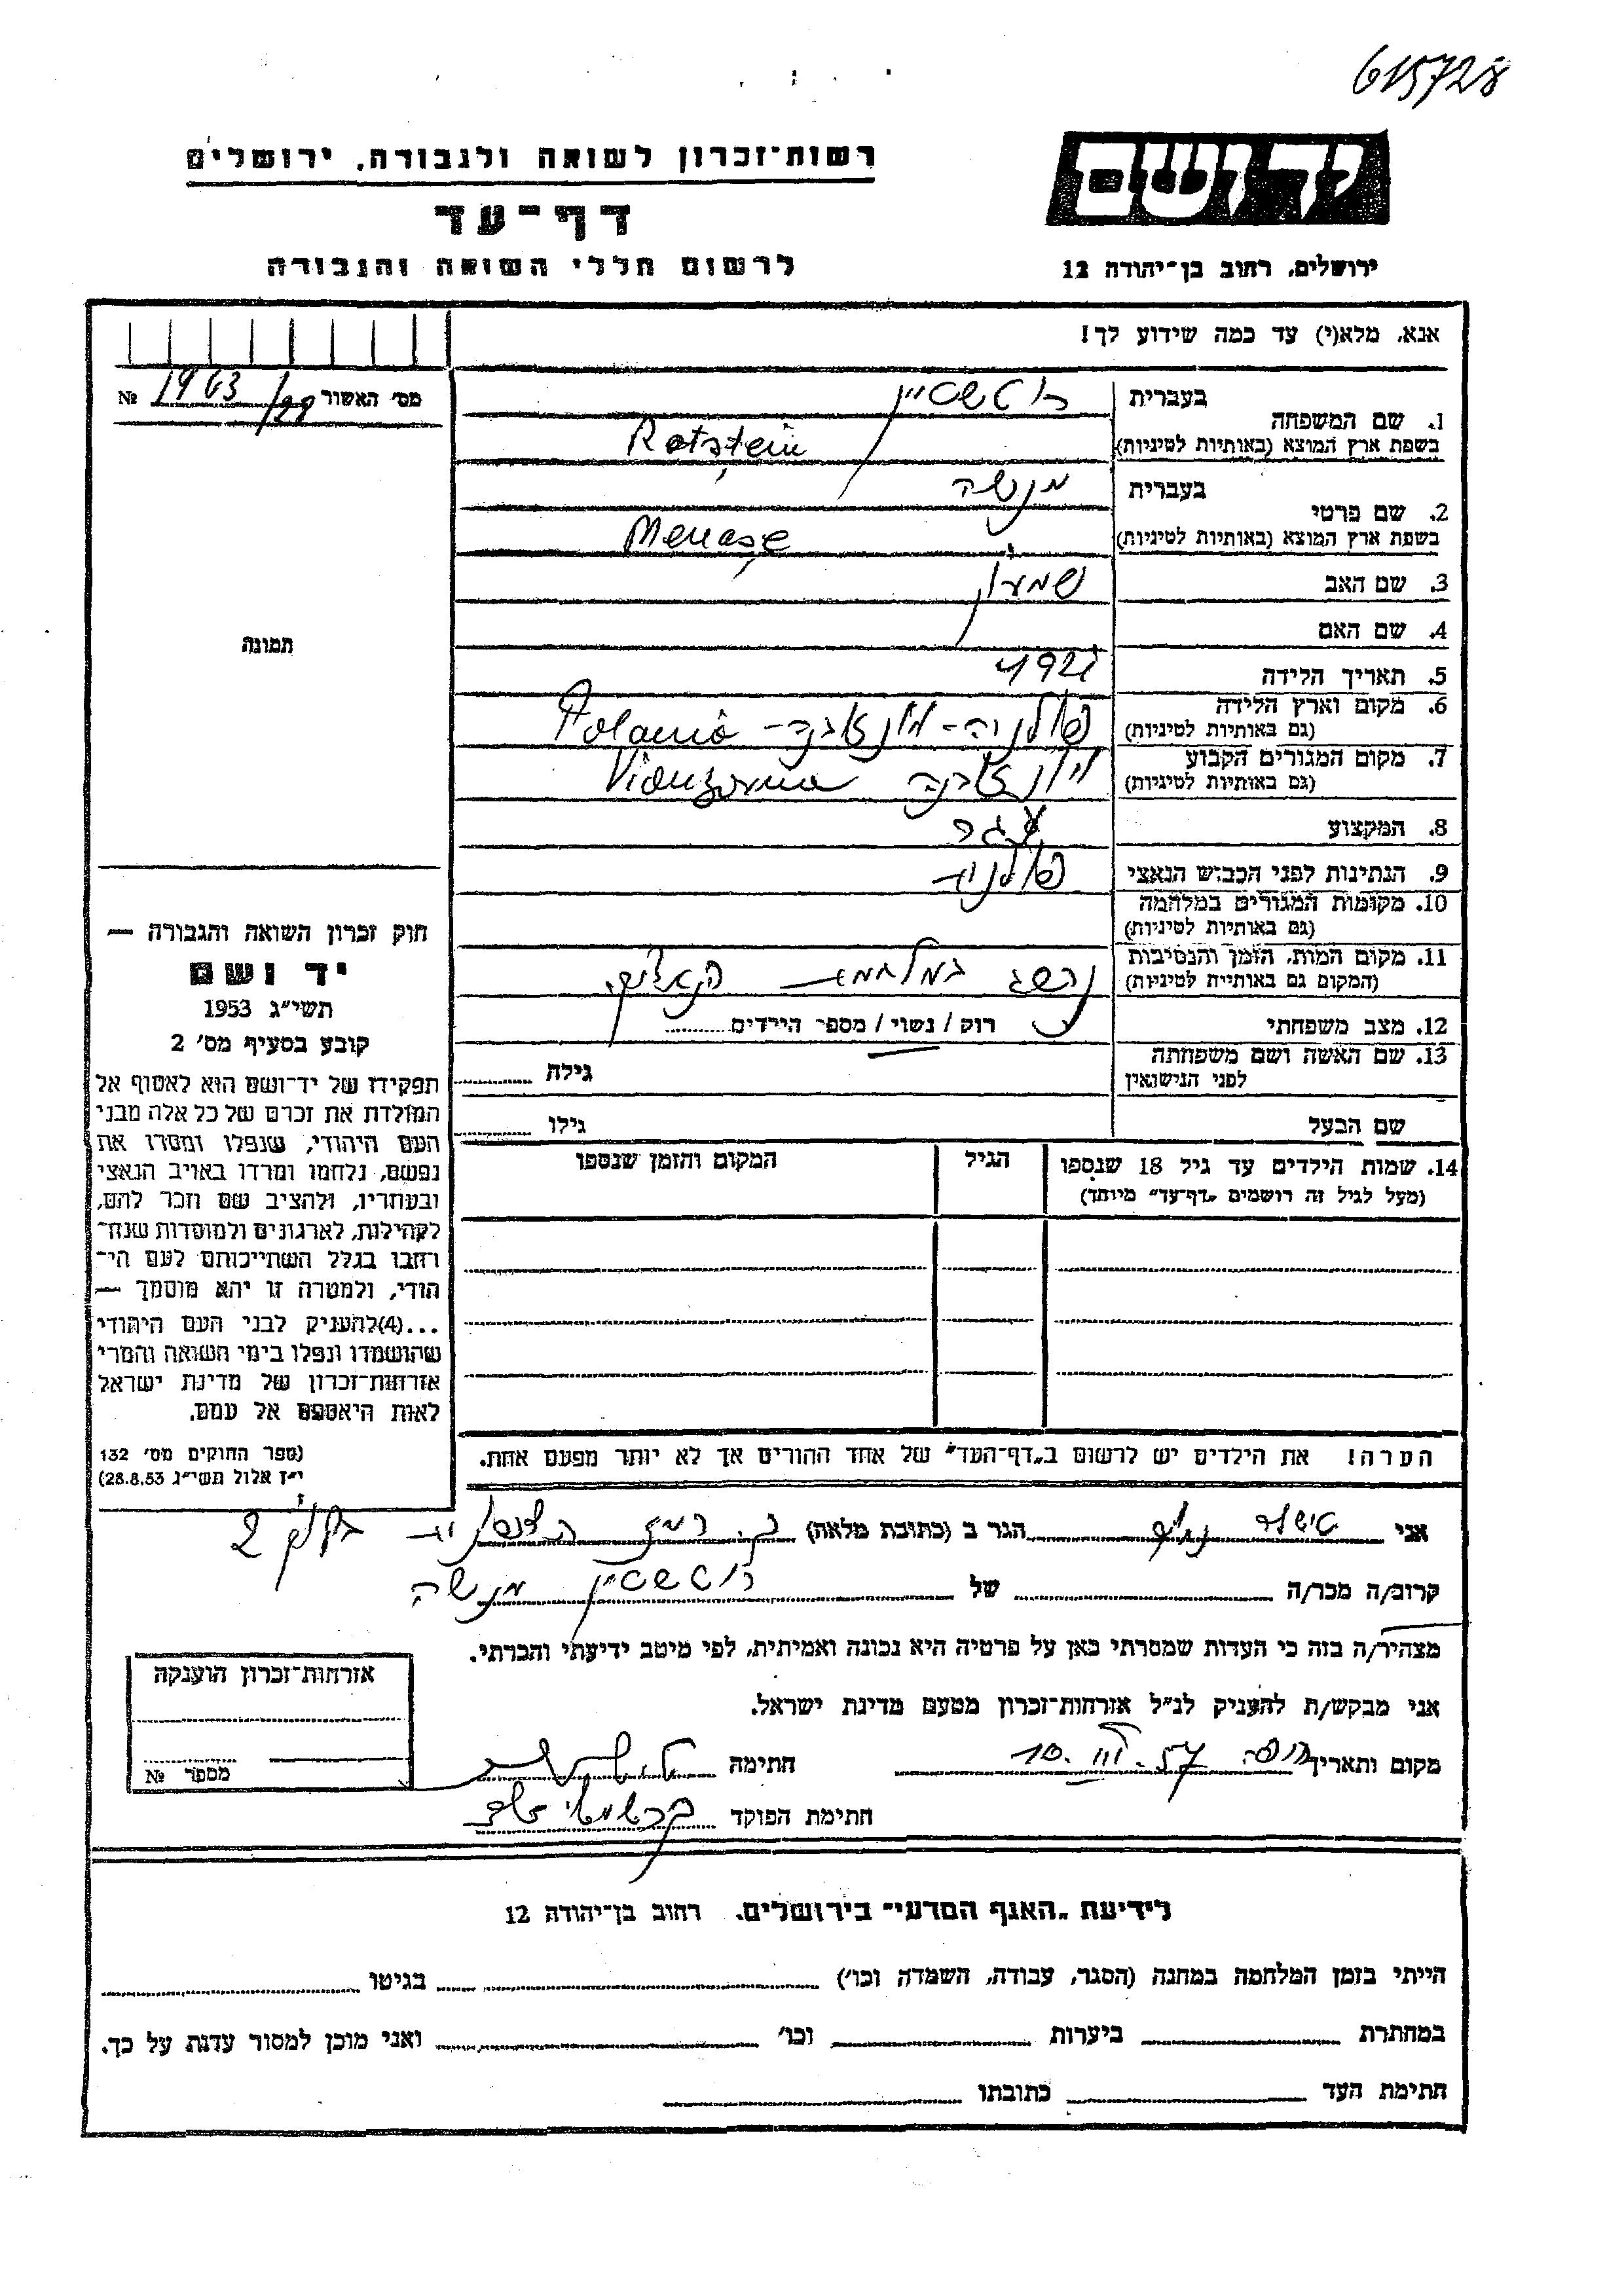 615728
יד ושם
ירושלים, רחוב בן־יהודה 12
רשות־זכרון לשואה ולגבורה, ירושלים
דף־עד
לרשום חללי השואה והגבורה
אנא, מלא(י) עד כמה שידוע לך!
מס׳ האשור 1963/28 №
תמונה
1. שם המשפחה בעברית רוטשטיין
בשפת ארץ המוצא (באותיות לטיניות) Rotştein
2. שם פרטי בעברית מנשה
בשפת ארץ המוצא (באותיות לטיניות) Menaşe
3. שם האב שמעון
4. שם האם
5. תאריך הלידה 1921
6. מקום וארץ הלידה פולניה-
(גם באותיות לטיניות) Polania
7. מקום המגורים הקבוע
(גם באותיות לטיניות)
8. המקצוע
9. הנתינות לפני הכבוש הנאצי פולנית
10. מקומות המגורים במלחמה
(גם באותיות לטיניות)
11. מקום המות, הזמן והנסיבות במלחמת
(המקום גם באותיות לטיניות)
12. מצב משפחתי רוק / נשוי / מספר הילדים
13. שם האשה ושם משפחתה
לפני הנישואין
גילה
שם הבעל
גילו
14. שמות הילדים עד גיל 18 שנספו
(מעל לגיל זה רושמים „דף־עד״ מיוחד)
הגיל
המקום והזמן שנספו
הערה! את הילדים יש לרשום ב„דף־העד״ של אחד ההורים אך לא יותר מפעם אחת.
חוק זכרון השואה והגבורה —
יד ושם
תשי״ג 1953
קובע בסעיף מס׳ 2
תפקידו של יד־ושם הוא לאסוף אל
המולדת את זכרם של כל אלה מבני
העם היהודי, שנפלו ומסרו את
נפשם, נלחמו ומרדו באויב הנאצי
ובעוזריו, ולהציב שם וזכר להם,
לקהילות, לארגונים ולמוסדות שנח־
רחבו בגלל השתייכותם לעם הי־
הודי, ולמטרה זו יהא מוסמך —
...(4)להעניק לבני העם היהודי
שהושמדו ונפלו בימי השואה והמרי
אזרחות־זכרון של מדינת ישראל
לאות היאספם אל עמם.
(ספר החוקים מס׳ 132
י״ז אלול תשי״ג 28.8.53)
אני הגר ב (כתובת מלאה)
קרוב/ה מכר/ה של רוטשטיין מנשה
מצהיר/ה בזה כי העדות שמסרתי כאן על פרטיה היא נכונה ואמיתית, לפי מיטב ידיעתי והכרתי.
אני מבקש/ת להעניק לנ״ל אזרחות־זכרון מטעם מדינת ישראל.
מקום ותאריך חיפה 10.III.57 חתימה
חתימת הפוקד
אזרחות־זכרון הוענקה
מספר №
לידיעת „האגף המדעי״ בירושלים, רחוב בן־יהודה 12
הייתי בזמן המלחמה במחנה (הסגר, עבודה, השמדה וכו׳) בגיטו
במחתרת ביערות וכו׳ ואני מוכן למסור עדות על כך.
חתימת העד כתובתו